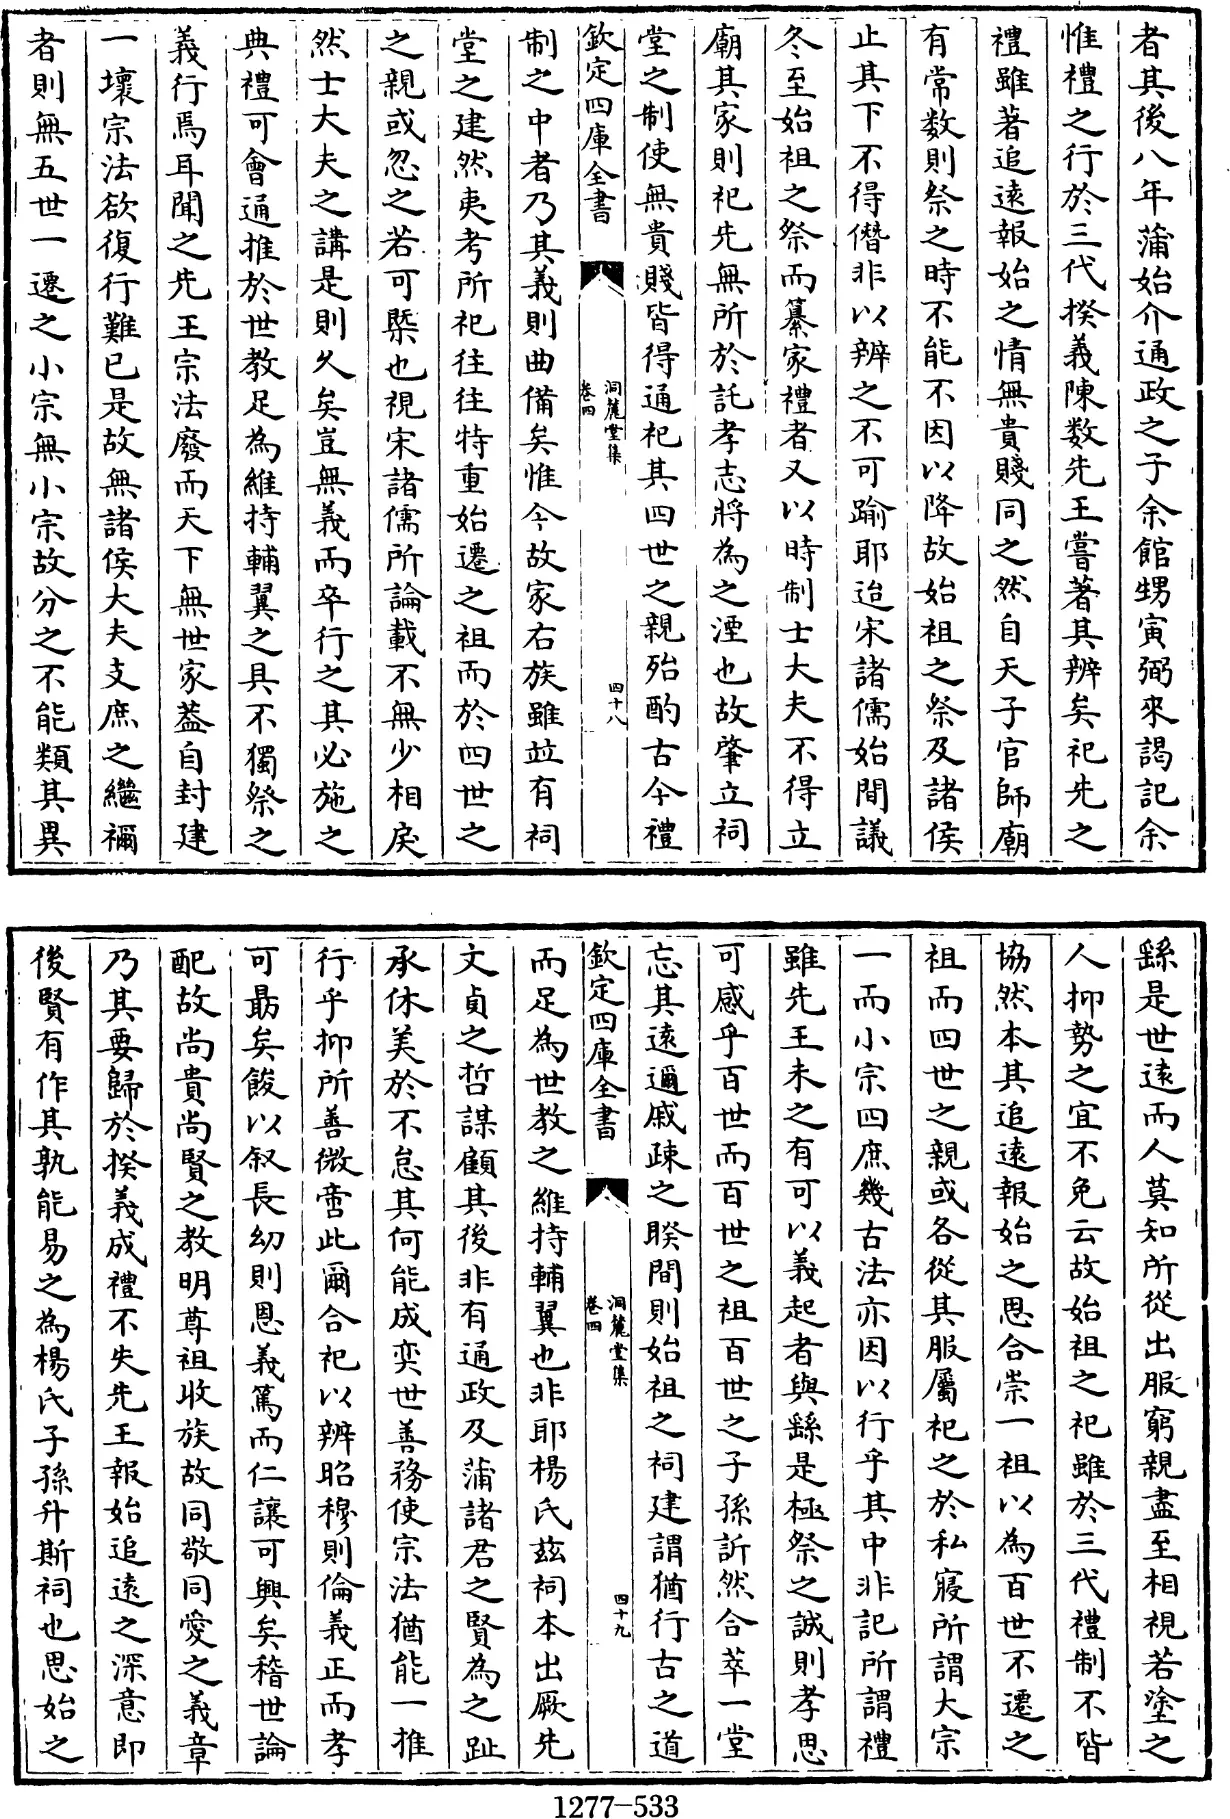 者其後八年蒲始介通政之子余館甥寅弼來謁記余
惟禮之行於三代揆義陳数先王嘗著其辨矣祀先之
禮雖著追遠報始之情無貴賤同之然自天子官師廟
有常数則祭之時不能不因以降故始祖之祭及諸侯
止其下不得僭非以辨之不可踰耶迨宋諸儒始間議
冬至始祖之祭而纂家禮者又以時制士大夫不得立
廟其家則祀先無所於託孝志將為之湮也故肇立祠
堂之制使無貴賤皆得通祀其四世之親殆酌古今禮
欽定四庫全書
洞麓堂集
卷四
四十八
制之中者乃其義則曲備矣惟今故家右族雖竝有祠
堂之建然夷考所祀往往特重始遷之祖而於四世之
之親或忽之若可槩也視宋諸儒所論載不無少相戾
然士大夫之講是則久矣豈無義而卒行之其必施之
典禮可會通推於世教足為維持輔翼之具不獨祭之
義行焉耳聞之先王宗法廢而天下無世家葢自封建
一壞宗法欲復行難已是故無諸侯大夫支庶之繼禰
者則無五世一遷之小宗無小宗故分之不能類其異
繇是世遠而人莫知所從出服窮親盡至相視若塗之
人抑勢之宜不免云故始祖之祀雖於三代禮制不皆
協然本其追遠報始之思合崇一祖以為百世不遷之
祖而四世之親或各從其服屬祀之於私寢所謂大宗
一而小宗四庶幾古法亦因以行乎其中非記所謂禮
雖先王未之有可以義起者與繇是極祭之誠則孝思
可感乎百世而百世之祖百世之子孫訢然合萃一堂
忘其遠邇戚疎之睽間則始祖之祠建謂猶行古之道
欽定四庫全書
洞麓堂集
卷四
四十九
而足為世教之維持輔翼也非耶楊氏茲祠本出厥先
文貞之哲謀顧其後非有通政及蒲諸君之賢為之趾
承休美於不怠其何能成奕世善務使宗法猶能一推
行乎抑所善微啻此爾合祀以辨昭穆則倫義正而孝
可朂矣餕以叙長幼則恩義篤而仁讓可興矣稽世論
配故尚貴尚賢之教明尊祖收族故同敬同愛之義章
乃其要歸於揆義成禮不失先王報始追遠之深意即
後賢有作其孰能易之為楊氏子孫升斯祠也思始之
1277-533